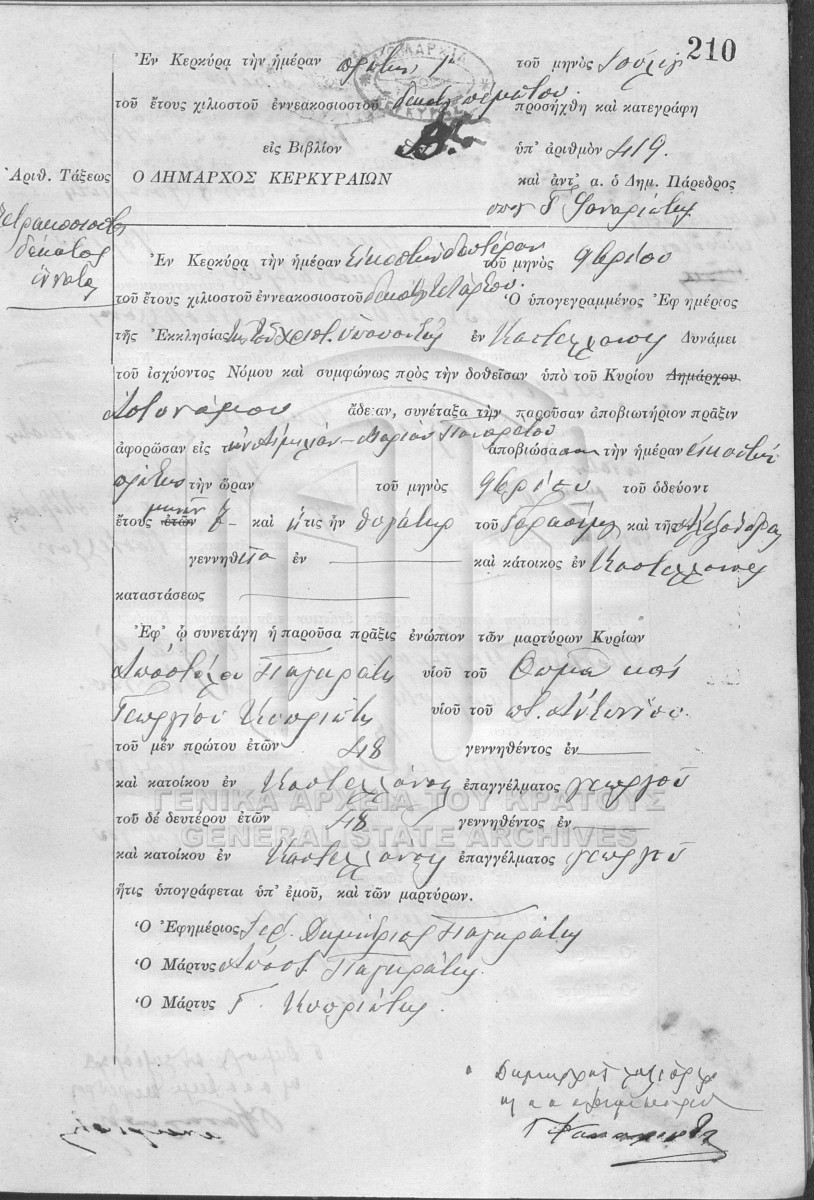 210
Ἐν Κερκύρᾳ τὴν ἡμέραν πρώτην 1ην τοῦ μηνὸς Ἰουλίου
τοῦ ἔτους χιλιοστοῦ ἐννεακοσιοστοῦ δεκάτου πέμπτου προσήχθη καὶ κατεγράφη
εἰς Βιβλίον ὑπ' ἀριθμὸν 419.
Ἀριθ. Τάξεως Ὁ ΔΗΜΑΡΧΟΣ ΚΕΡΚΥΡΑΙΩΝ καὶ ἀντ' α. ὁ Δημ. Πάρεδρος
Τετρακοσιοστὸς
δέκατος
ἔννατος
Ἐν Κερκύρᾳ τὴν ἡμέραν εἰκοστὴν δευτέραν τοῦ μηνὸς 9βρίου
τοῦ ἔτους χιλιοστοῦ ἐννεακοσιοστοῦ δεκάτου τετάρτου Ὁ ὑπογεγραμμένος Ἐφημέριος
τῆς Ἐκκλησίας ἐν Καστελλάνοις Δυνάμει
τοῦ ἰσχύοντος Νόμου καὶ συμφώνως πρὸς τὴν δοθεῖσαν ὑπὸ τοῦ Κυρίου Δημάρχου
Ἀστυνόμου ἄδειαν, συνέταξα τὴν παροῦσαν ἀποβιωτήριον πρᾶξιν
ἀφορῶσαν εἰς τὴν Μαρίαν Παγκράτου ἀποβιώσασαν τὴν ἡμέραν εἰκοστὴν
πρώτην τὴν ὥραν τοῦ μηνὸς 9βρίου τοῦ ὁδεύοντ
ἔτους ἐτῶν μηνῶν 7 καὶ ἥτις ἦν θυγάτηρ τοῦ Γερασίμου καὶ τῆς
γεννηθεῖσα ἐν καὶ κάτοικος ἐν Καστελλάνοις
καταστάσεως
Ἐφ' ᾧ συνετάγη ἡ παροῦσα πρᾶξις ἐνώπιον τῶν μαρτύρων Κυρίων
Ἀποστόλου Παγκράτη υἱοῦ τοῦ Θωμᾶ καὶ
Γεωργίου Κυπριώτη υἱοῦ τοῦ π. Ἀντωνίου.
τοῦ μὲν πρώτου ἐτῶν 48 γεννηθέντος ἐν
καὶ κατοίκου ἐν Καστελλάνοις ἐπαγγέλματος γεωργοῦ
ΓΕΝΙΚΑ ΑΡΧΕΙΑ ΤΟΥ ΚΡΑΤΟΥΣ
τοῦ δὲ δευτέρου ἐτῶν 48 γεννηθέντος ἐν
GENERAL STATE ARCHIVES
καὶ κατοίκου ἐν Καστελλάνοις ἐπαγγέλματος γεωργοῦ
ἥτις ὑπογράφεται ὑπ' ἐμοῦ, καὶ τῶν μαρτύρων.
Ὁ Ἐφημέριος Ἱερ. Δημήτριος Παγκράτης
Ὁ Μάρτυς Ἀποστ. Παγκράτης
Ὁ Μάρτυς Γ. Κυπριώτης